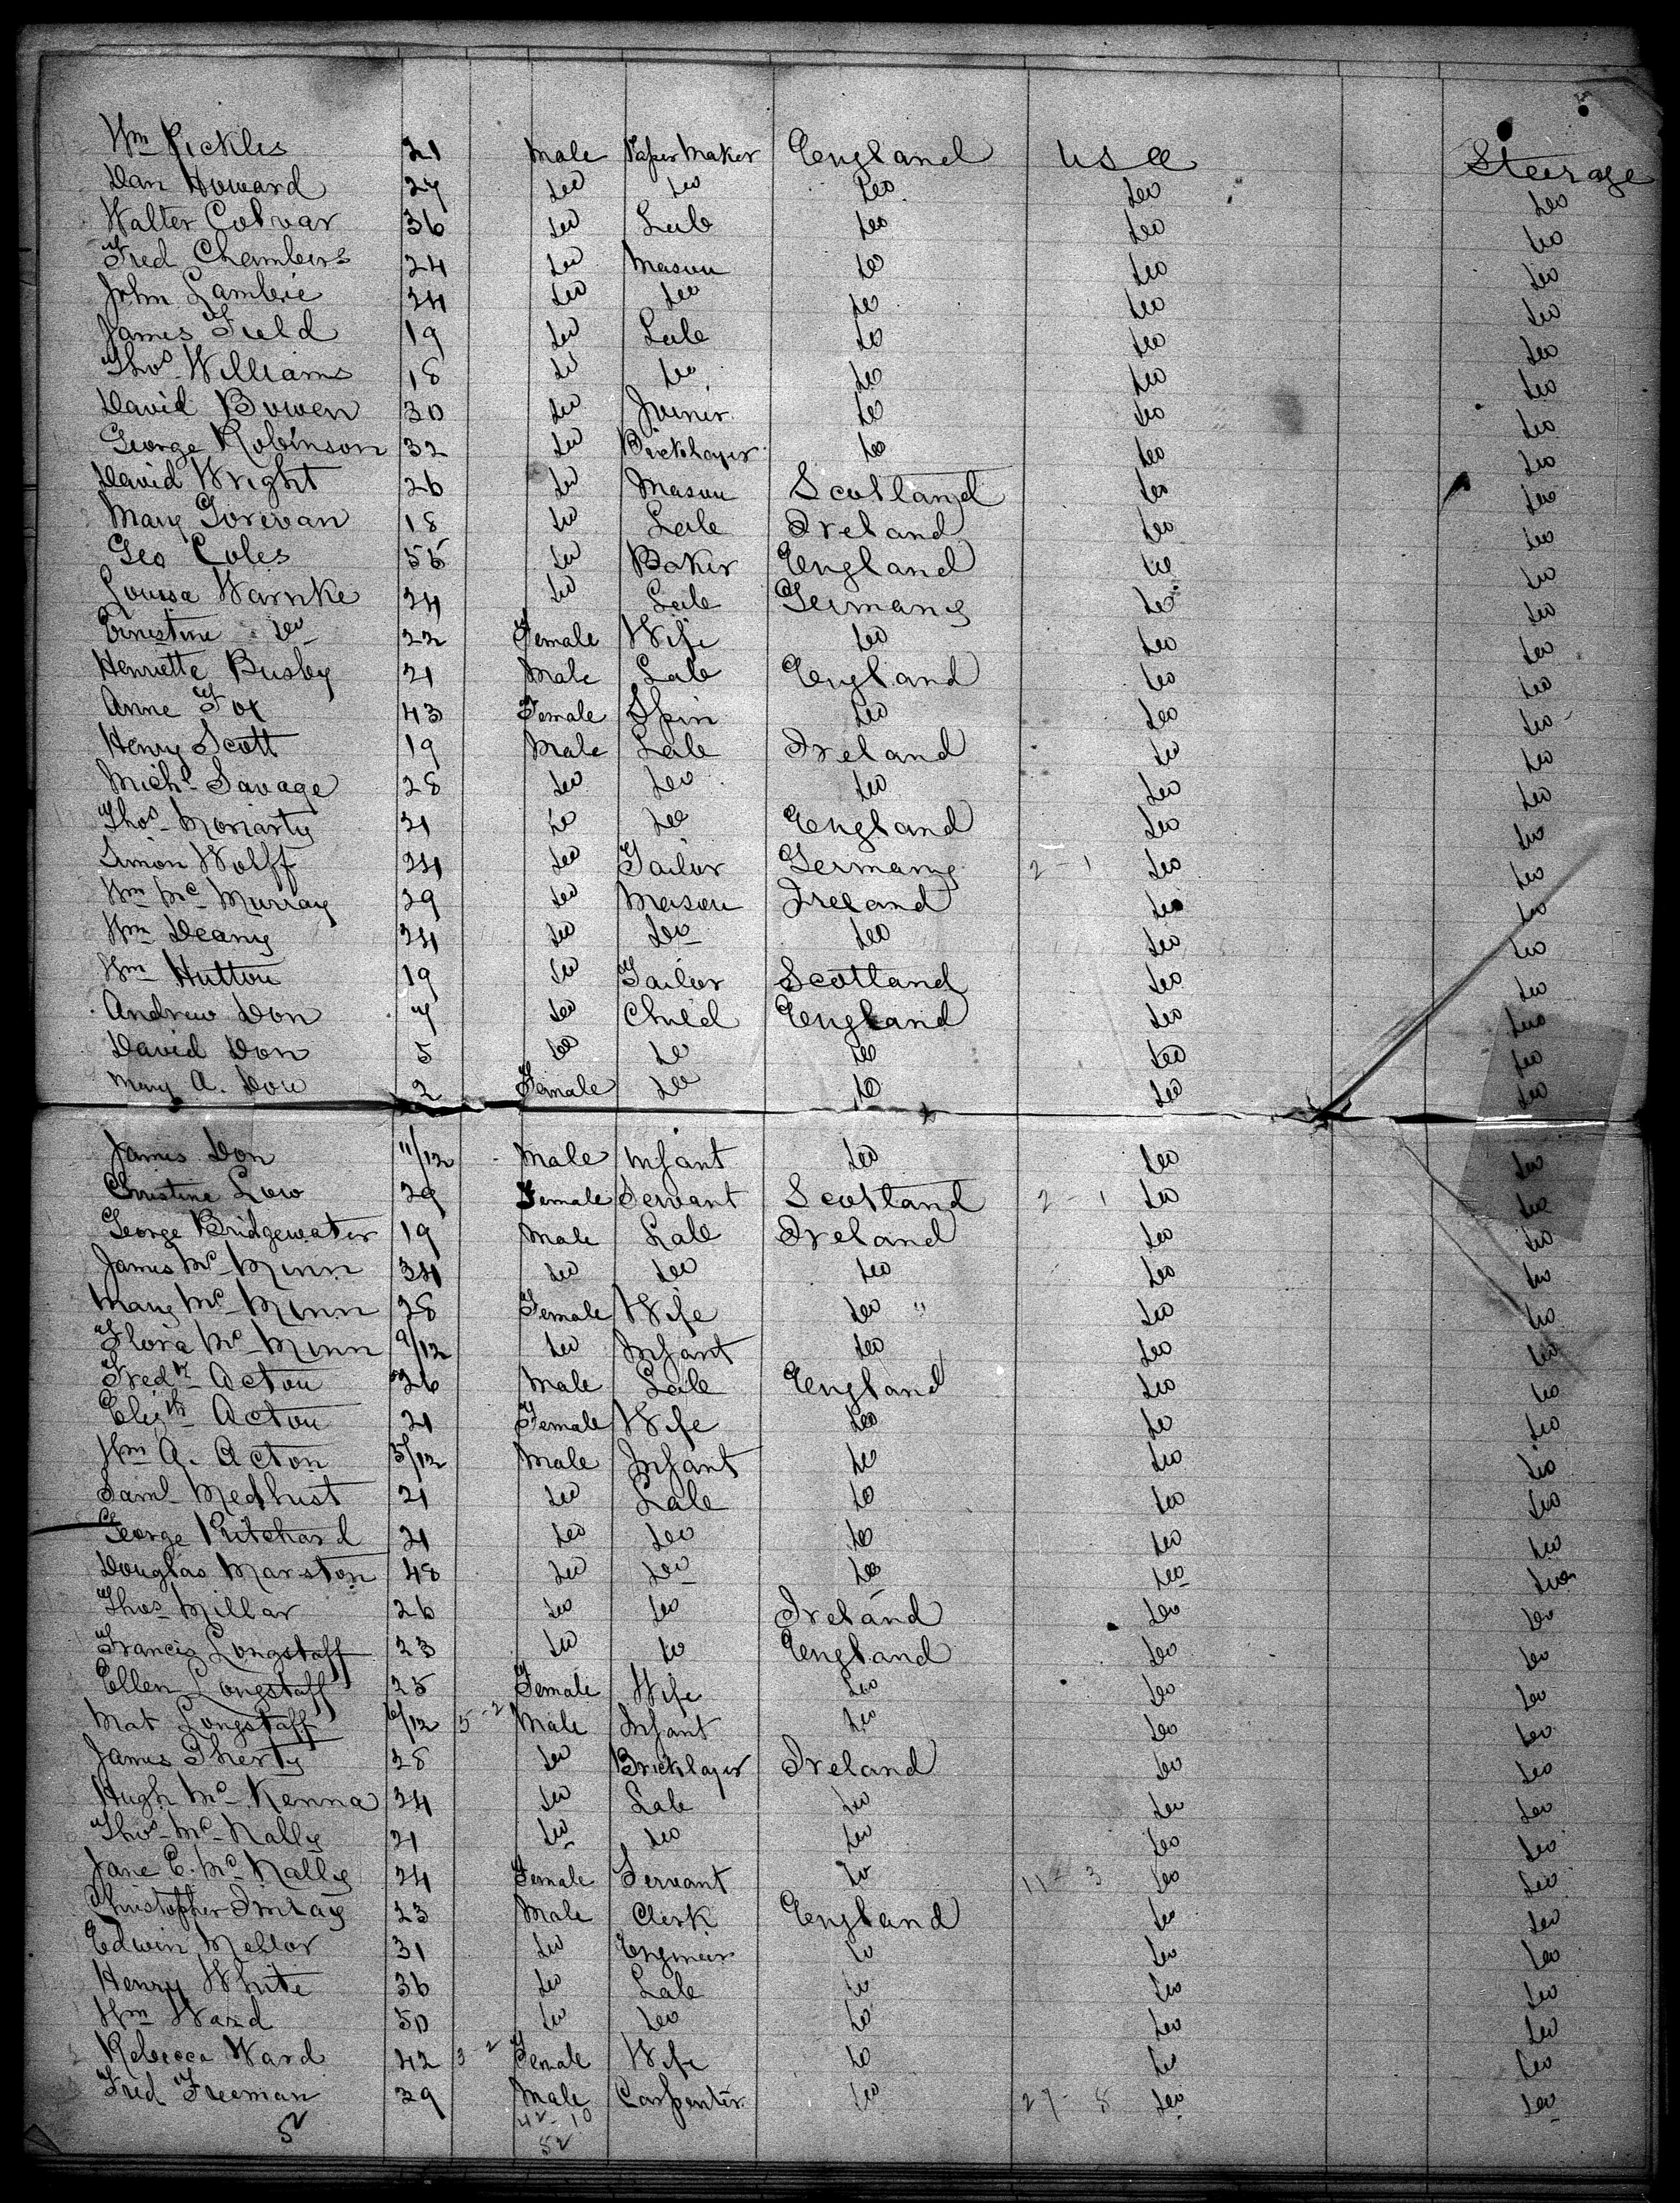 Wm Pickles 21 Male Paper Maker England USA Steerage
Dan Howard 27 do do do do do
Walter Colvar 36 do Lab do do do
Fred Chambers 24 do Mason do do do
John Lambie 24 do do do do do
James Field 19 do Lab do do do
Thos Williams 18 do do do do do
David Bowen 30 do Joiner do do do
George Robinson 32 do Bricklayer do do do
David Wright 26 do Mason Scotland do do
Mary Gorevan 18 do Lab Ireland do do
Geo Coles 55 do Baker England do do
Louisa Warnke 24 do Lab Germany do do
Ernestine do 22 Female Wife do do do
Henrietta Busby 21 Male Lab England do do
Anne Fox 43 Female Spin do do do
Henry Scott 19 Male Lab Ireland do do
Michl Savage 28 do do do do do
Thos Moriarty 21 do do England do do
Simon Wolff 24 do Tailor Germany 2 - 1 do do
Wm Mc Murray 29 do Mason Ireland do do
Wm Deany 24 do do do do do
Wm Hutton 19 do Tailor Scotland do do
Andrew Don 7 do Child England do do
David Don 5 do do do do do
Mary A. Don 2 Female do do do do
James Don 11/12 Male Infant do do do
Christine Low 29 Female Servant Scotland 2 - 1 do do
George Bridgewater 19 Male Lab Ireland do do
James Mc Minn 34 do do do do do
Mary Mc Minn 28 Female Wife do " do do
Flora Mc Minn 9/12 do Infant do do do
Fredk Acton 26 Male Lab England do do
Elizth Acton 21 Female Wife do do do
Wm A. Acton 5/12 Male Infant do do do
Saml Medhust 21 do Lab do do do
George Pritchard 21 do do do do do
Douglas Marston 48 do do do do do
Thos Millar 26 do do Ireland do do
Francis Longstaff 23 do do England do do
Ellen Longstaff 25 Female Wife do do do
Mat Longstaff 6/12 5 - 2 Male Infant do do do
James Sherty 28 do Bricklayer Ireland do do
Hugh Mc Kenna 24 do Lab do do do
Thos Mc Nally 21 do do do do do
Jane E. Mc Nally 24 Female Servant do 11 - 3 do do
Christopher Imray 23 Male Clerk England do do
Edwin Mellor 31 do Engineer do do do
Henry White 36 do Lab do do do
Wm Ward 50 do do do do do
Rebecca Ward 42 3 - 2 Female Wife do do do
Fred Freeman 29 Male Carpenter do 27 - 8 do do
52 42 - 10
52